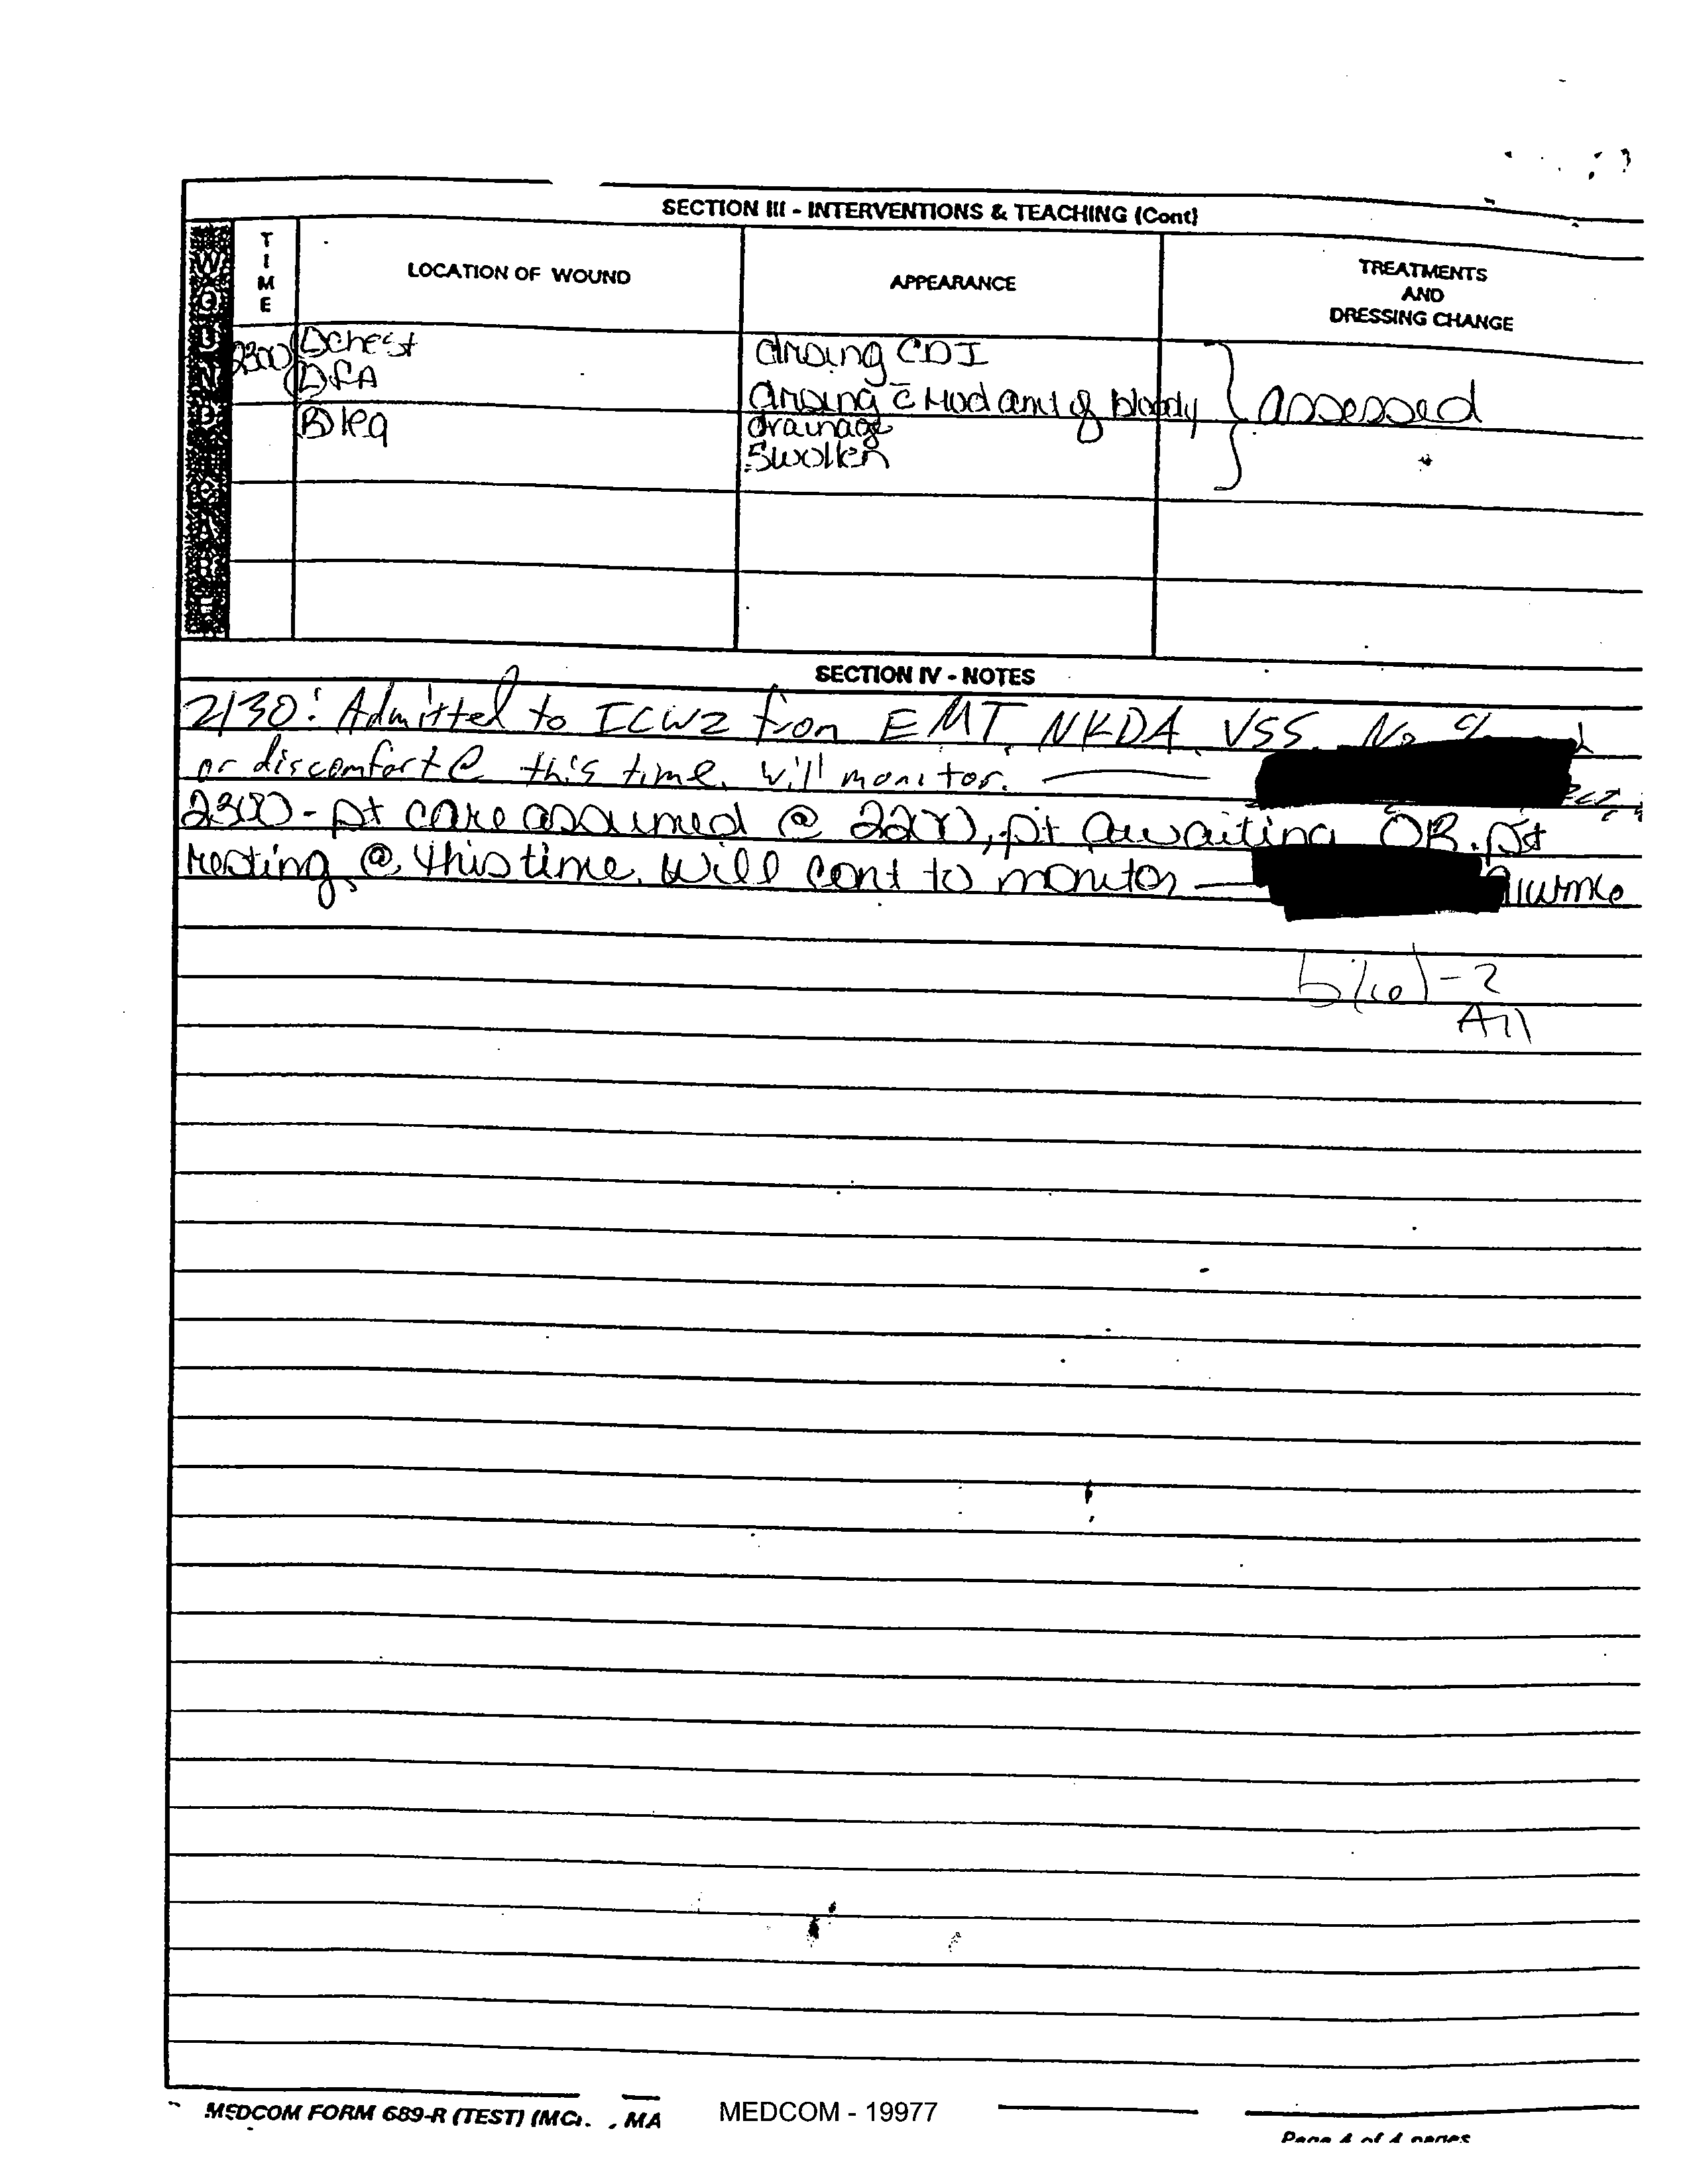 SECTION III - INTERVENTIONS & TEACHING (Cont)
WOUND CARE
TIME
LOCATION OF WOUND
APPEARANCE
TREATMENTS
AND
DRESSING CHANGE
2300 Ⓛ chest
drsing CDI
Ⓛ FA
drsing c̄ Mod amt of bloody
assessed
Ⓑ leg
drainage
swollen
SECTION IV - NOTES
2130: Admitted to ICW2 from EMT. NKDA. VSS. No
or discomfort @ this time. will monitor.
2300 - pt care assumed @ 2200, pt awaiting OR. pt
resting @ this time. Will cont to monitor
b(6)-2
All
MEDCOM FORM 689-R (TEST) (MC. , MA
MEDCOM - 19977
Page 4 of 4 pages